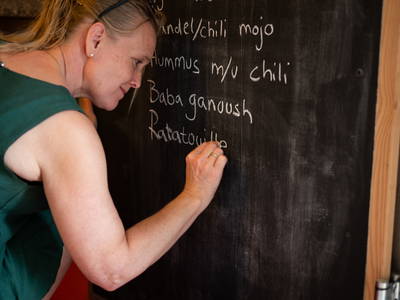 andel/chili mojo
Hummus m/u chili
Baba ganoush
Ratatouille